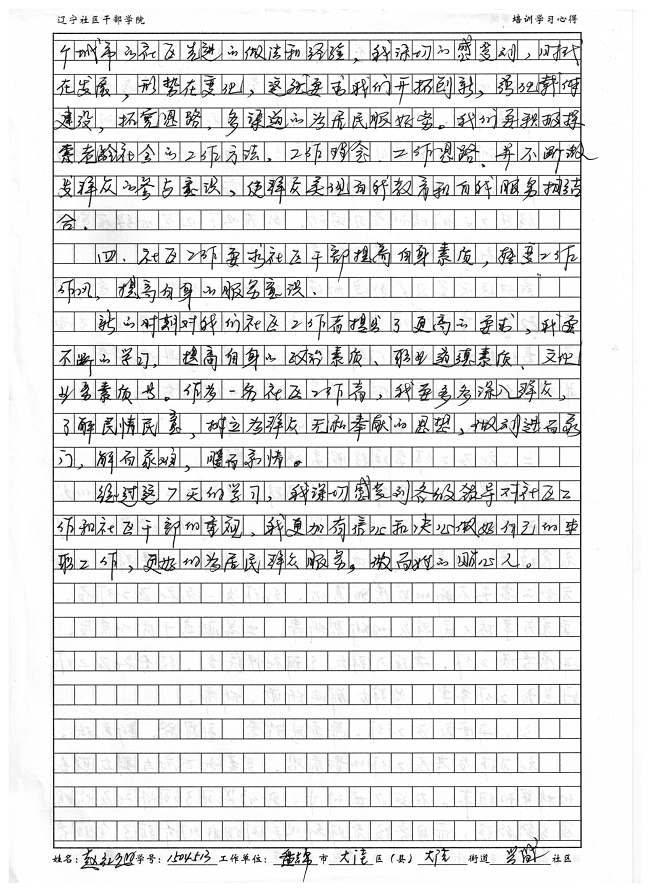 辽宁社区干部学院 培训学习心得
个城市的社区先进的做法和经验，我深切的感受到，时代
在发展，形势在变化，这就要求我们开拓创新，强化载体
建设，拓宽思路，多渠道的为居民服好务。我们要积极探
索老龄社会的工作方法、工作理念、工作思路，并不断激
发群众的参与意识，使群众实现自我教育和自我服务相结
合.
四、社区工作要求社区干部提高自身素质，转变工作
作风，提高自身的服务意识.
新的时期对我们社区工作者提出了更高的要求，我要
不断的学习，提高自身的政治素质、职业道德素质、文化
业务素质等。作为一名社区工作者，我要多多深入群众，
了解民情民意，树立为群众无私奉献的思想，做到进百家
门，解百家难，暖百家情。
经过这7天的学习，我深切感受到各级领导对社区工
作和社区干部的重视，我更加有信心和决心做好自己的本
职工作，更好的为居民群众服务。做百姓的贴心人。
姓名： 赵 学号：1504513 工作单位：盘锦 市 大洼 区（县） 大洼 街道 社区